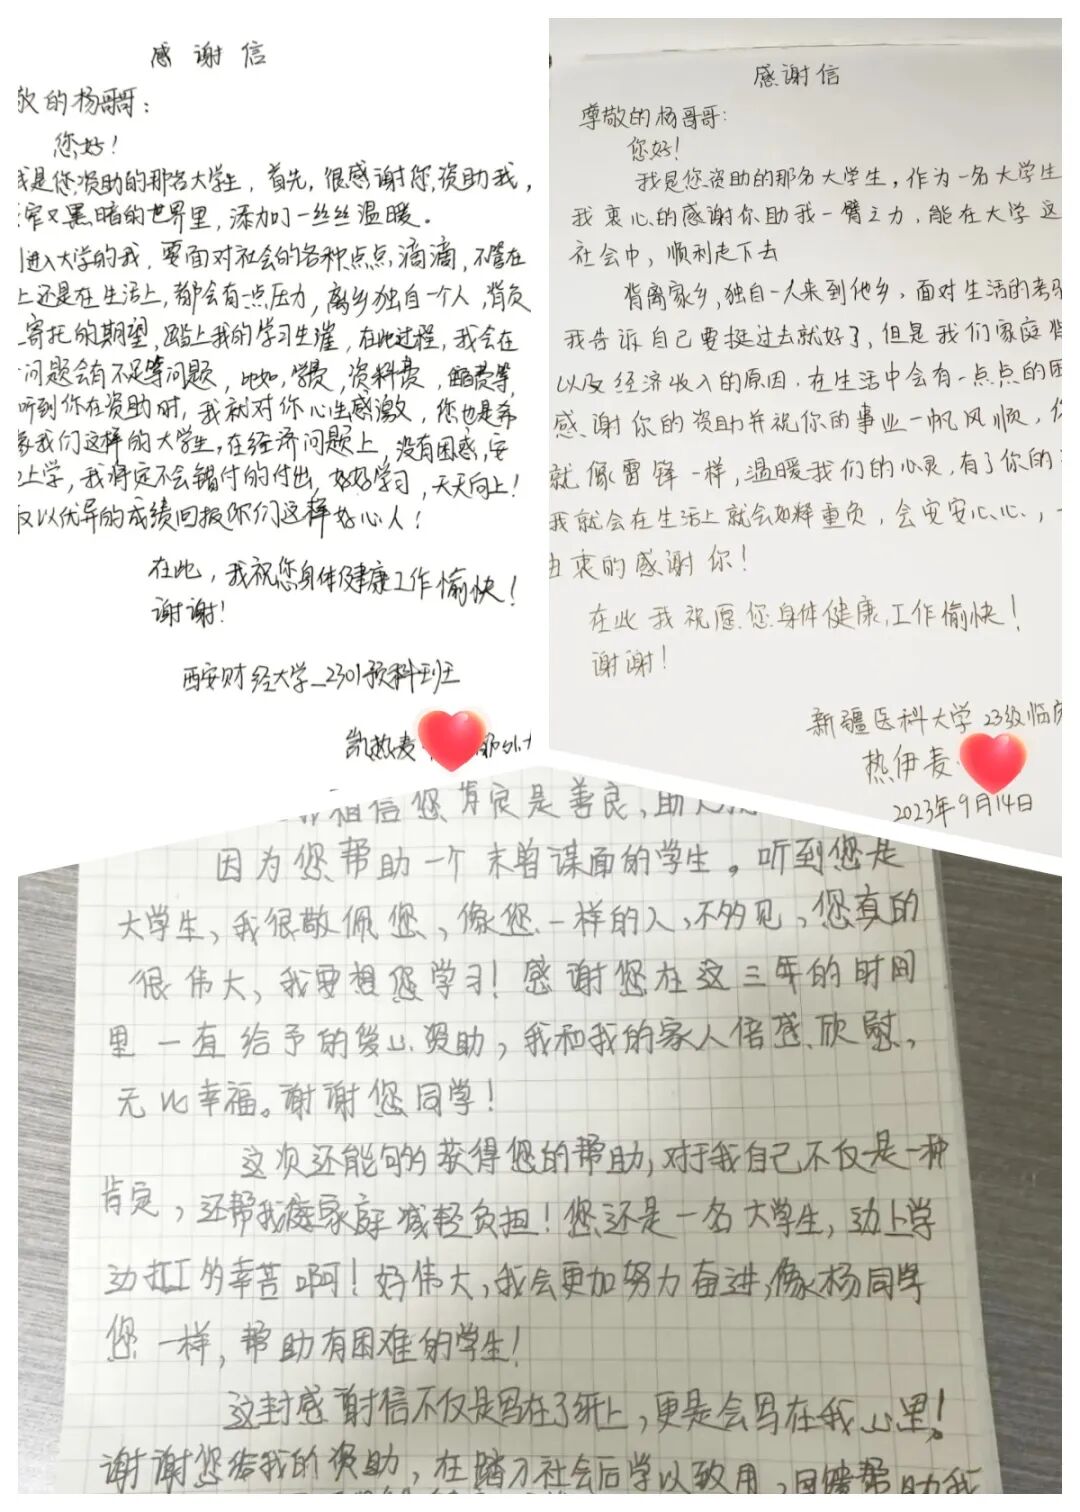 感谢信
敬的杨哥哥：
您好！
我是您资助的那名大学生，首先，很感谢您资助我，
窄又黑暗的世界里，添加叮一丝丝温暖。
进入大学的我，要面对社会的各种点点滴滴，不管在
上还是在生活上，都会有一点压力，离乡独自一个人，背负
寄托的期望，踏上我的学习生涯，在此过程，我会在
问题会有不足等问题，比如，学费，资料费，等，
听到你在资助时，我就对你心生感激，您也是希
象我们这样的大学生，在经济问题上，没有困惑，安
上学，我肯定不会错付的付出，好好学习，天天向上！
以优异的成绩回报你们这样好心人！
在此，我祝您身体健康工作愉快！
谢谢！
西安财经大学_2301预科班
凯热麦
感谢信
尊敬的杨哥哥：
您好！
我是您资助的那名大学生，作为一名大学生
我衷心的感谢你助我一臂之力，能在大学这
社会中，顺利走下去
背离家乡，独自一人来到他乡，面对生活的考
我告诉自己要挺过去就好了，但是我们家庭
以及经济收入的原因，在生活中会有一点点的困
感谢你的资助并祝你的事业一帆风顺，你
就像雷锋一样，温暖我们的心灵，有了你的
我就会在生活上就会如释重负，会安安心心，一
由衷的感谢你！
在此我祝愿您身体健康，工作愉快！
谢谢！
新疆医科大学23级临床
热伊麦
2023年9月14日
相信您肯定是善良，助
因为您帮助一个未曾谋面的学生。听到您是
大学生，我很敬佩您，像您一样的人，不多见，您真的
很伟大，我要想您学习！感谢您在这三年的时间
里一直给予的爱心资助，我和我的家人倍感欣慰，
无比幸福。谢谢您同学！
这次还能够的获得您的帮助，对于我自己不仅是一种
肯定，还帮我庭家庭减轻负担！您还是一名大学生，边上学
边打工的幸苦啊！好伟大，我会更加努力奋进，像杨同学
您一样，帮助有困难的学生！
这封感谢信不仅是写在了纸上，更是会写在我心里！
谢谢您给我的资助，在踏入社会后学以致用，回馈帮助我